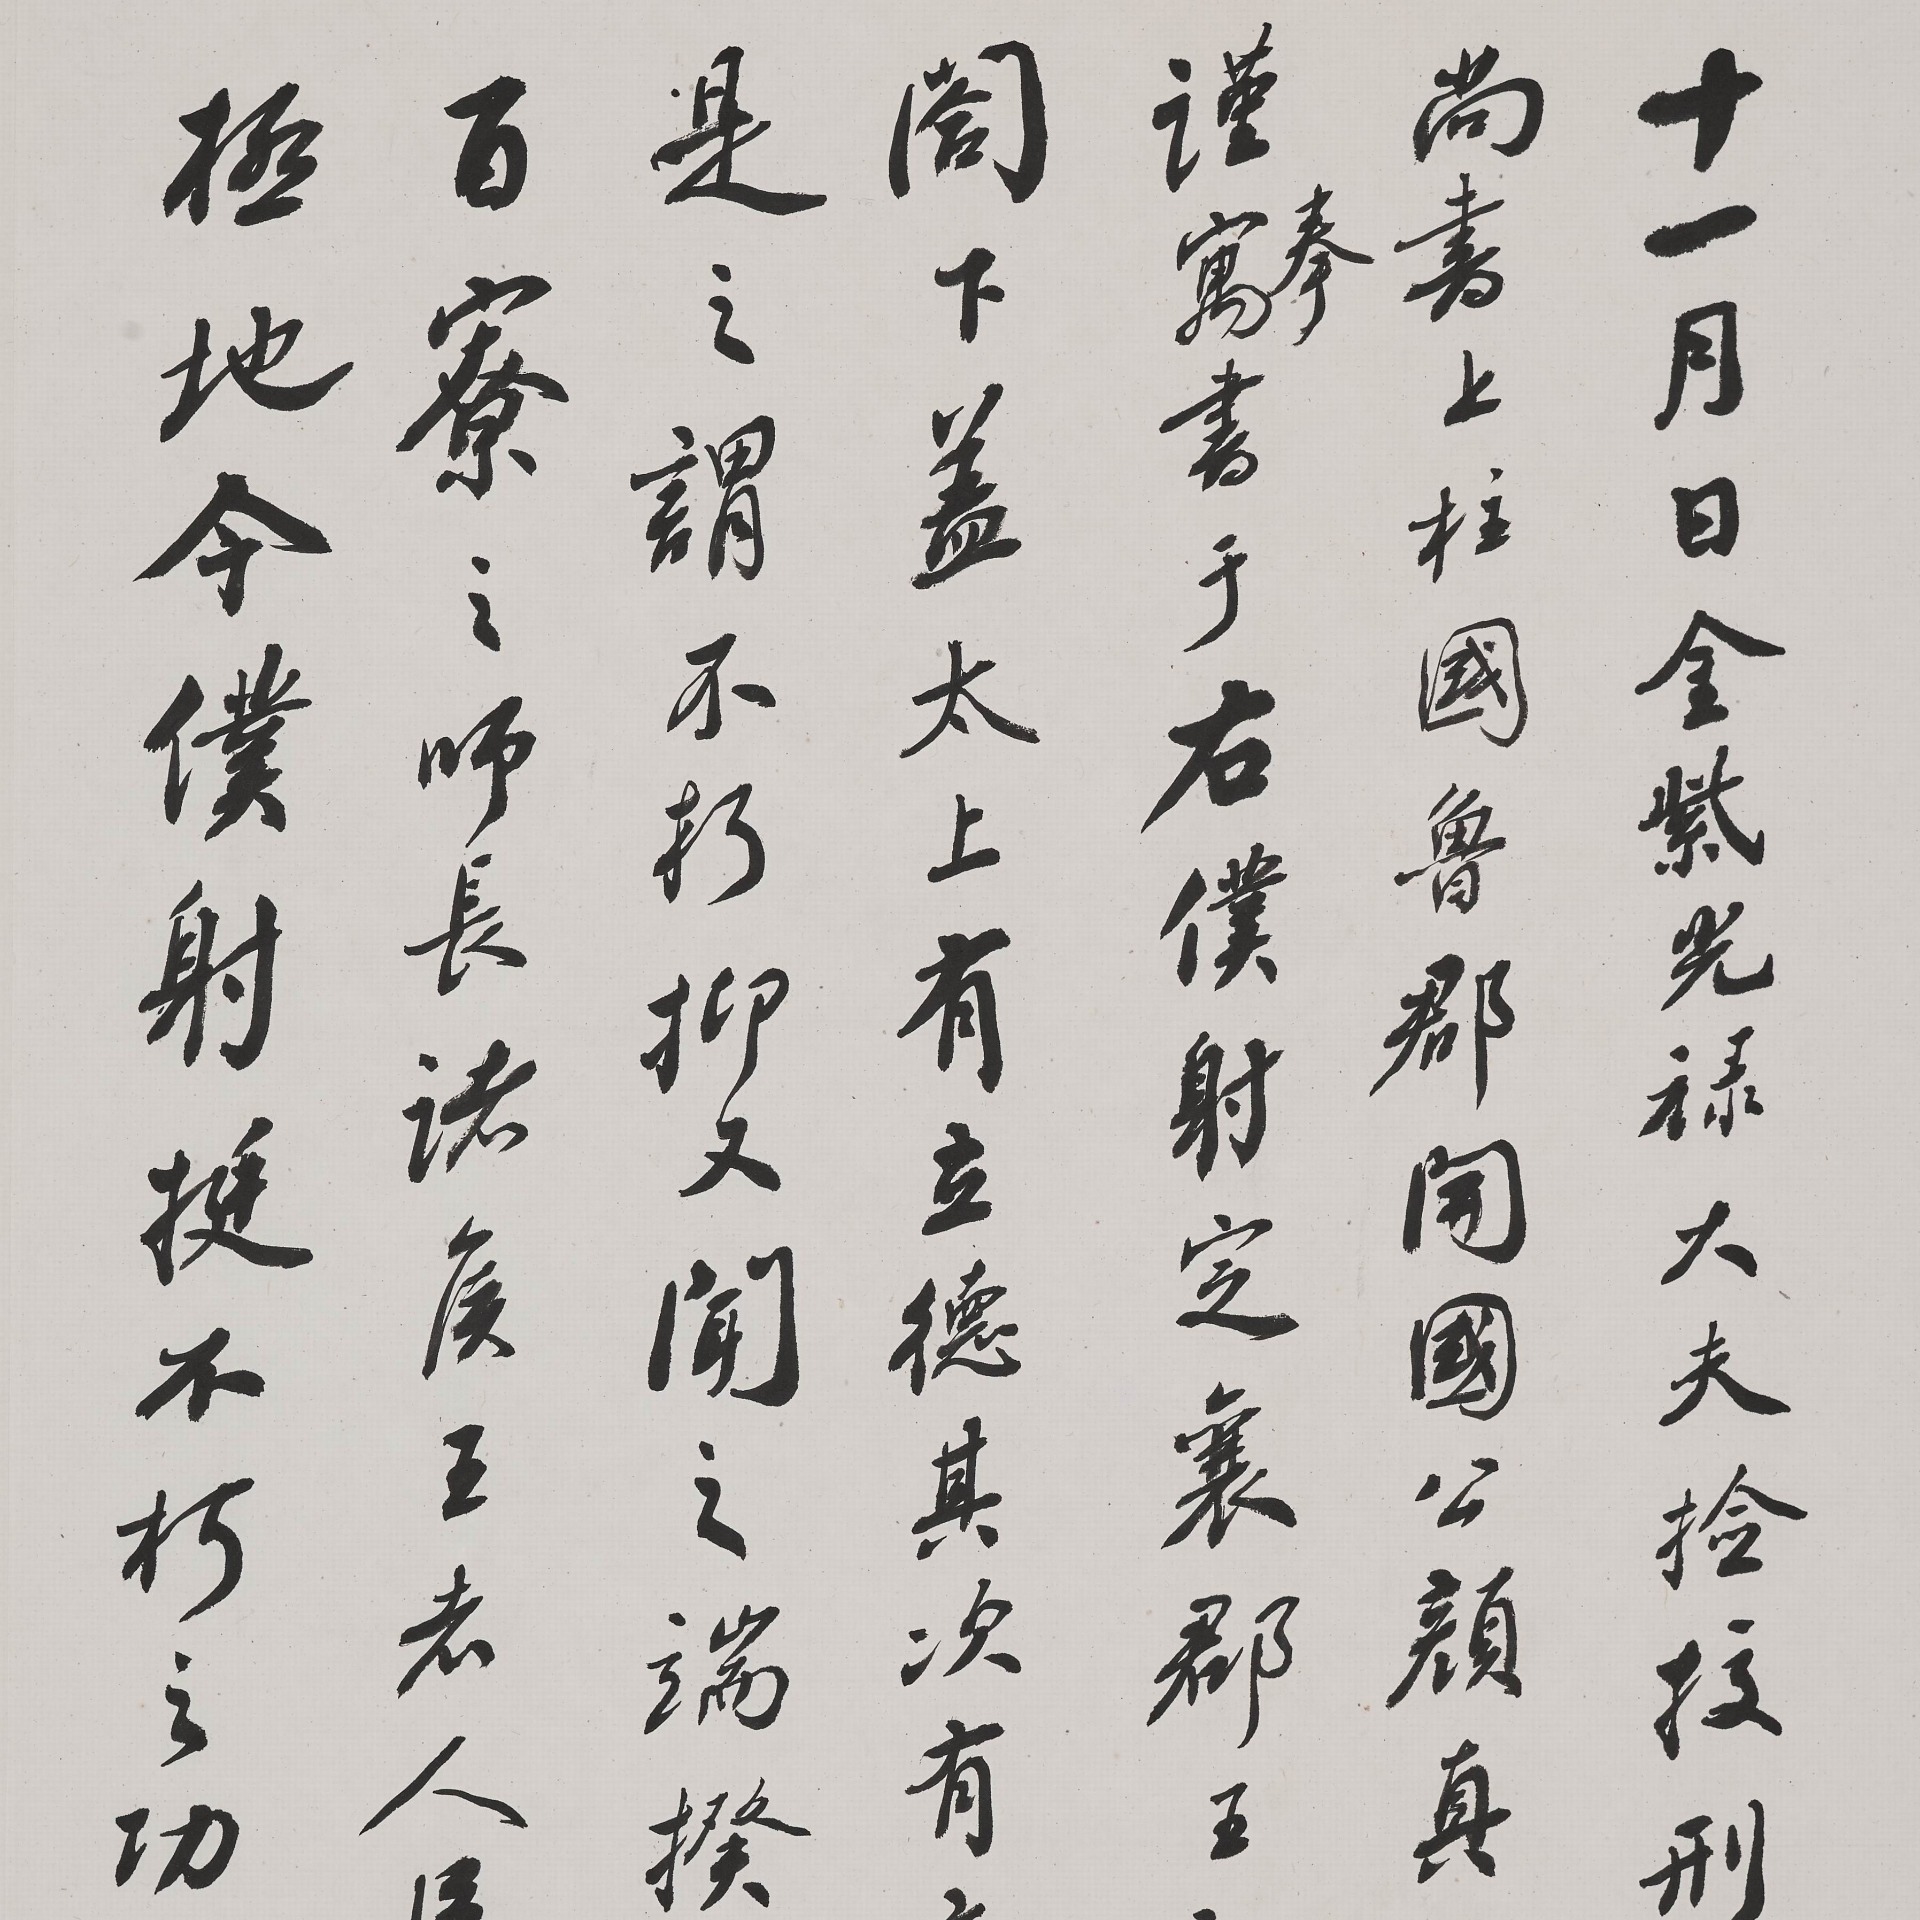 十一月日金紫光祿大夫撿挍刑
尚書上柱國魯郡開國公顏真
謹奉寓書于右僕射定襄郡王
閤下蓋太上有立德其次有
是之謂不朽抑又聞之端揆
百寮之師長諸侯王者人臣
極地今僕射挺不朽之功